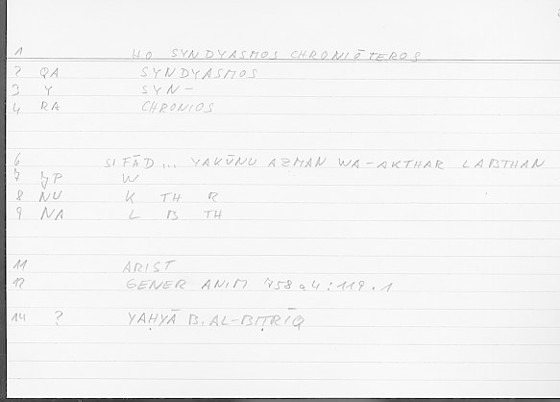 1 HO SYNDYASMOS CHRONIŌTEROS
2 QA SYNDYASMOS
3 Y SYN-
4 RA CHRONIOS
6 SIFĀD... YAKŪNU AZMAN WA-AKTHAR LABTHAN
7 W
8 NU K TH R
9 NA L B TH
11 ARIST
12 GENER ANIM 758a4:119.1
14 ? YAḤYĀ B. AL-BIṬRĪQ